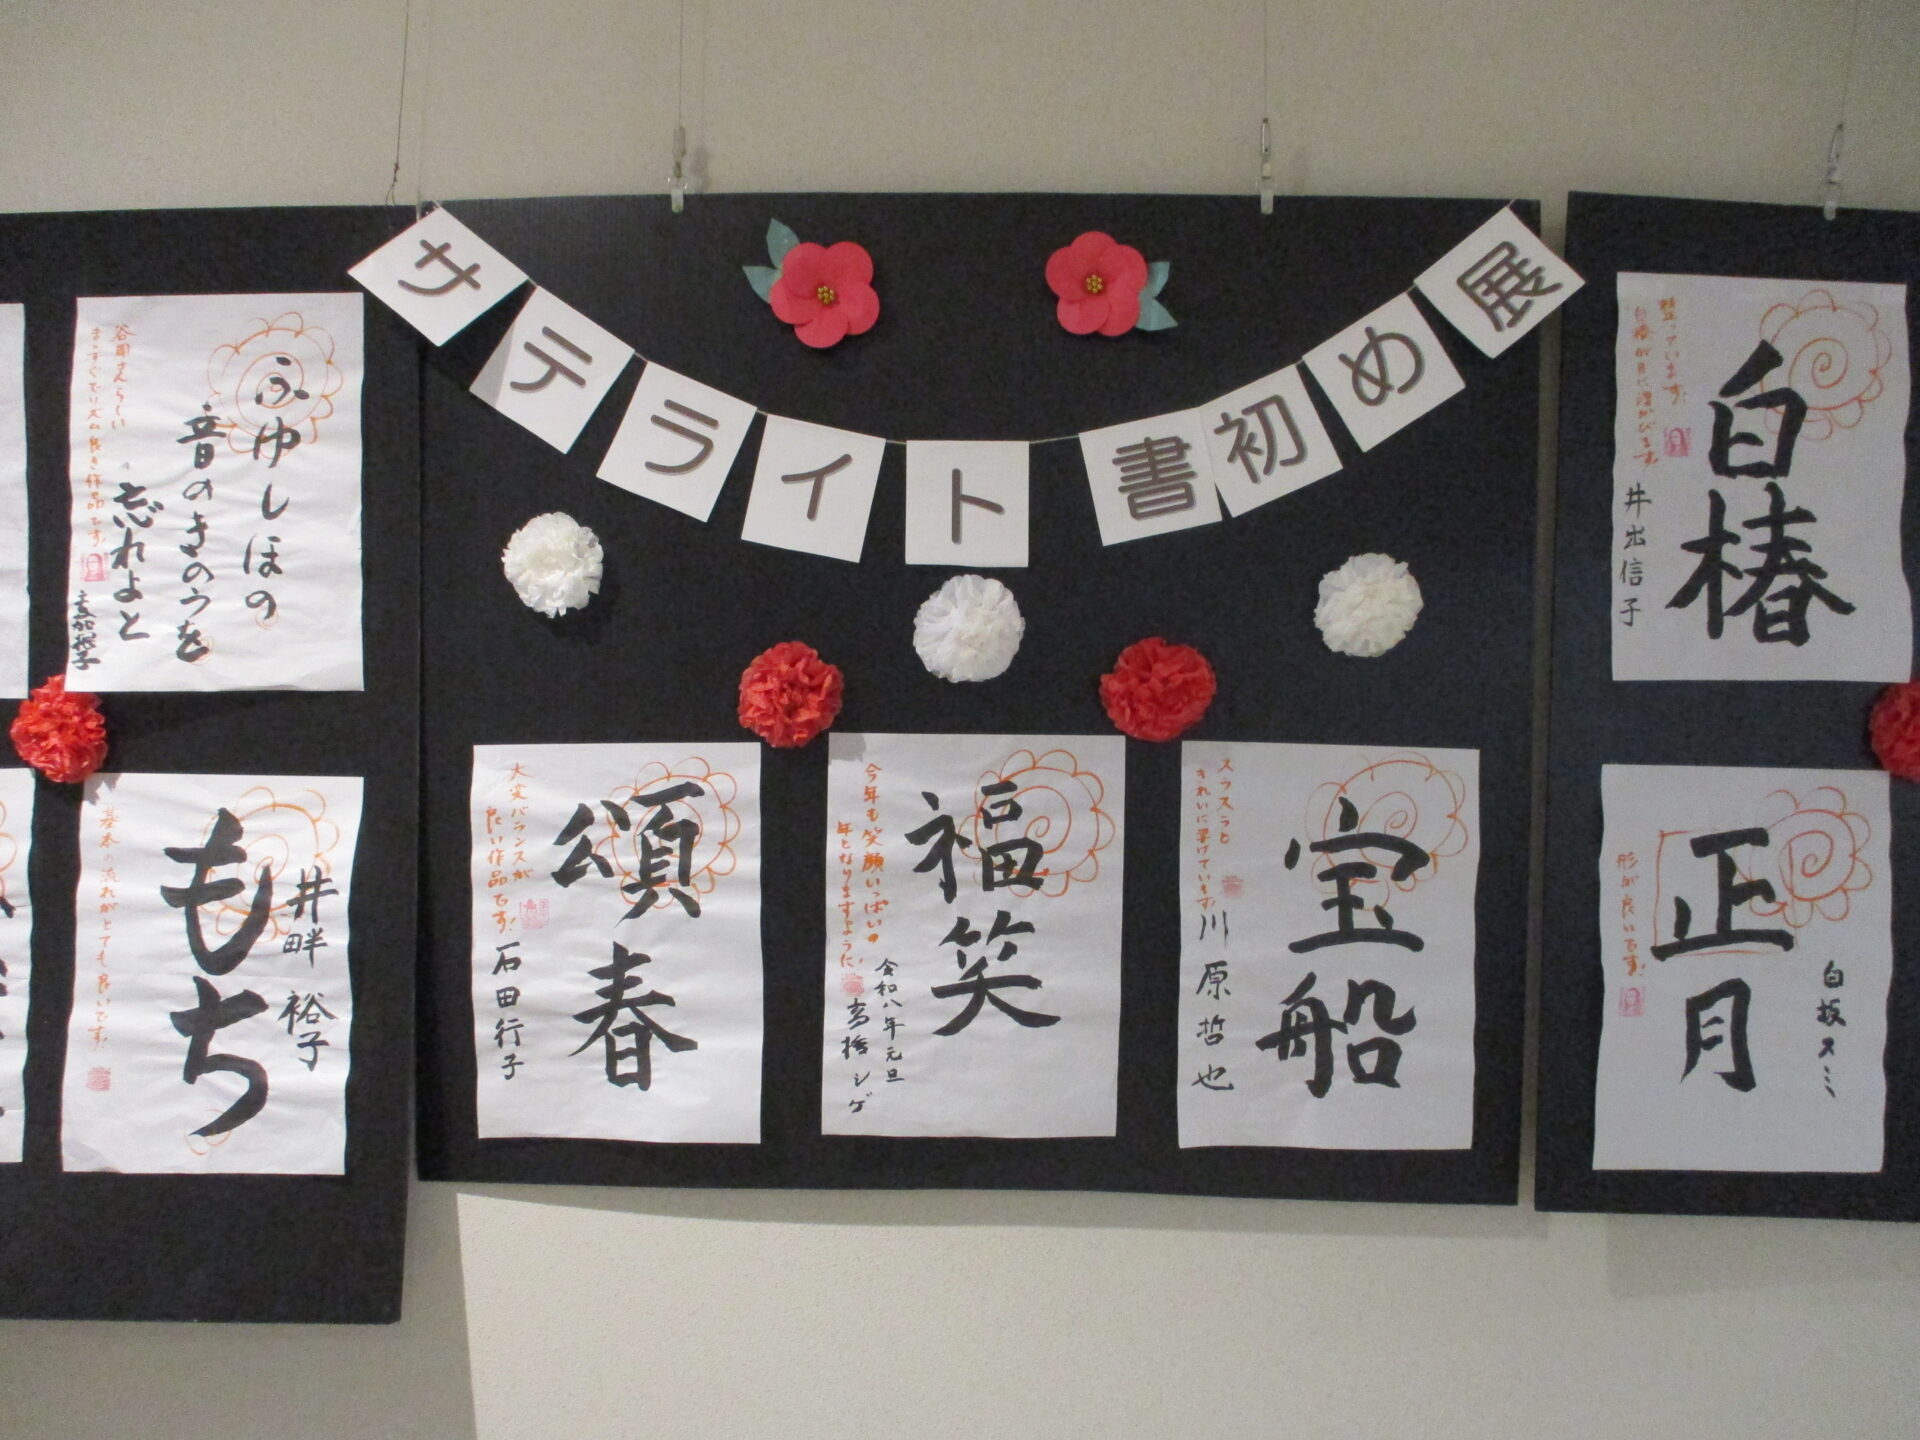 サテライト書初め展
ふゆしほの
音のきのうを
忘れよと
谷岡さんらしい
まっすぐでリズム良き作品です!
もち
井畔裕子
基本の流れがとても良いです!
頌春
大変バランスが
良い作品です!
石田行子
福笑
今年も笑顔いっぱいの
年となりますように!
令和八年元旦
高捨シゲ
宝船
スラスラと
きれいに書けています!
川原哲也
白椿
整っています!
白椿が目に浮かびます!
井出信子
正月
形が良いです!
白坂スミ